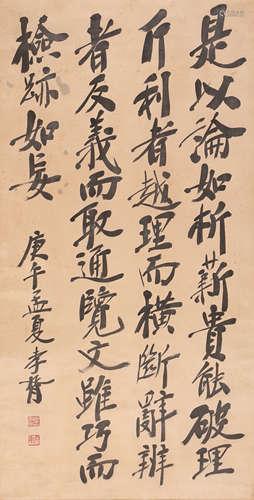 是以論如析薪貴能破理
斤利者越理而橫斷辭辨
者反義而取通覽文雖巧而
檢跡如妄
庚午孟夏李䏍